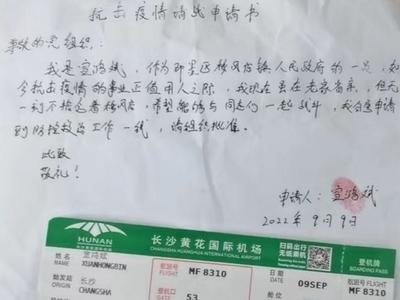 抗击疫情请战申请书
尊敬的党组织：
我是宣鸿斌，作为 人民政府的一员，如
今抗击疫情的事业正值用人之际，我现在虽在老家 ，但无
一刻不 ，希望能够与同志们一起战斗，我自愿申请
到防控救治工作一线，请组织批准。
此致
敬礼！
申请人：宣鸿斌
2022年9月9日
HUNAN
长沙黄花国际机场
CHANGSHA HUANGHUA INTERNATIONAL AIRPORT
扫码出行
无纸乘机
登机牌
BOARDING PASS
姓名
NAME
宣鸿斌
XUANHONGBIN
航班号
FLIGHT
MF8310
日期
DATE
09SEP
航班号
FLIGHT
MF8310
始发站
FROM
长沙
CHANGSHA
登机口
GATE
53